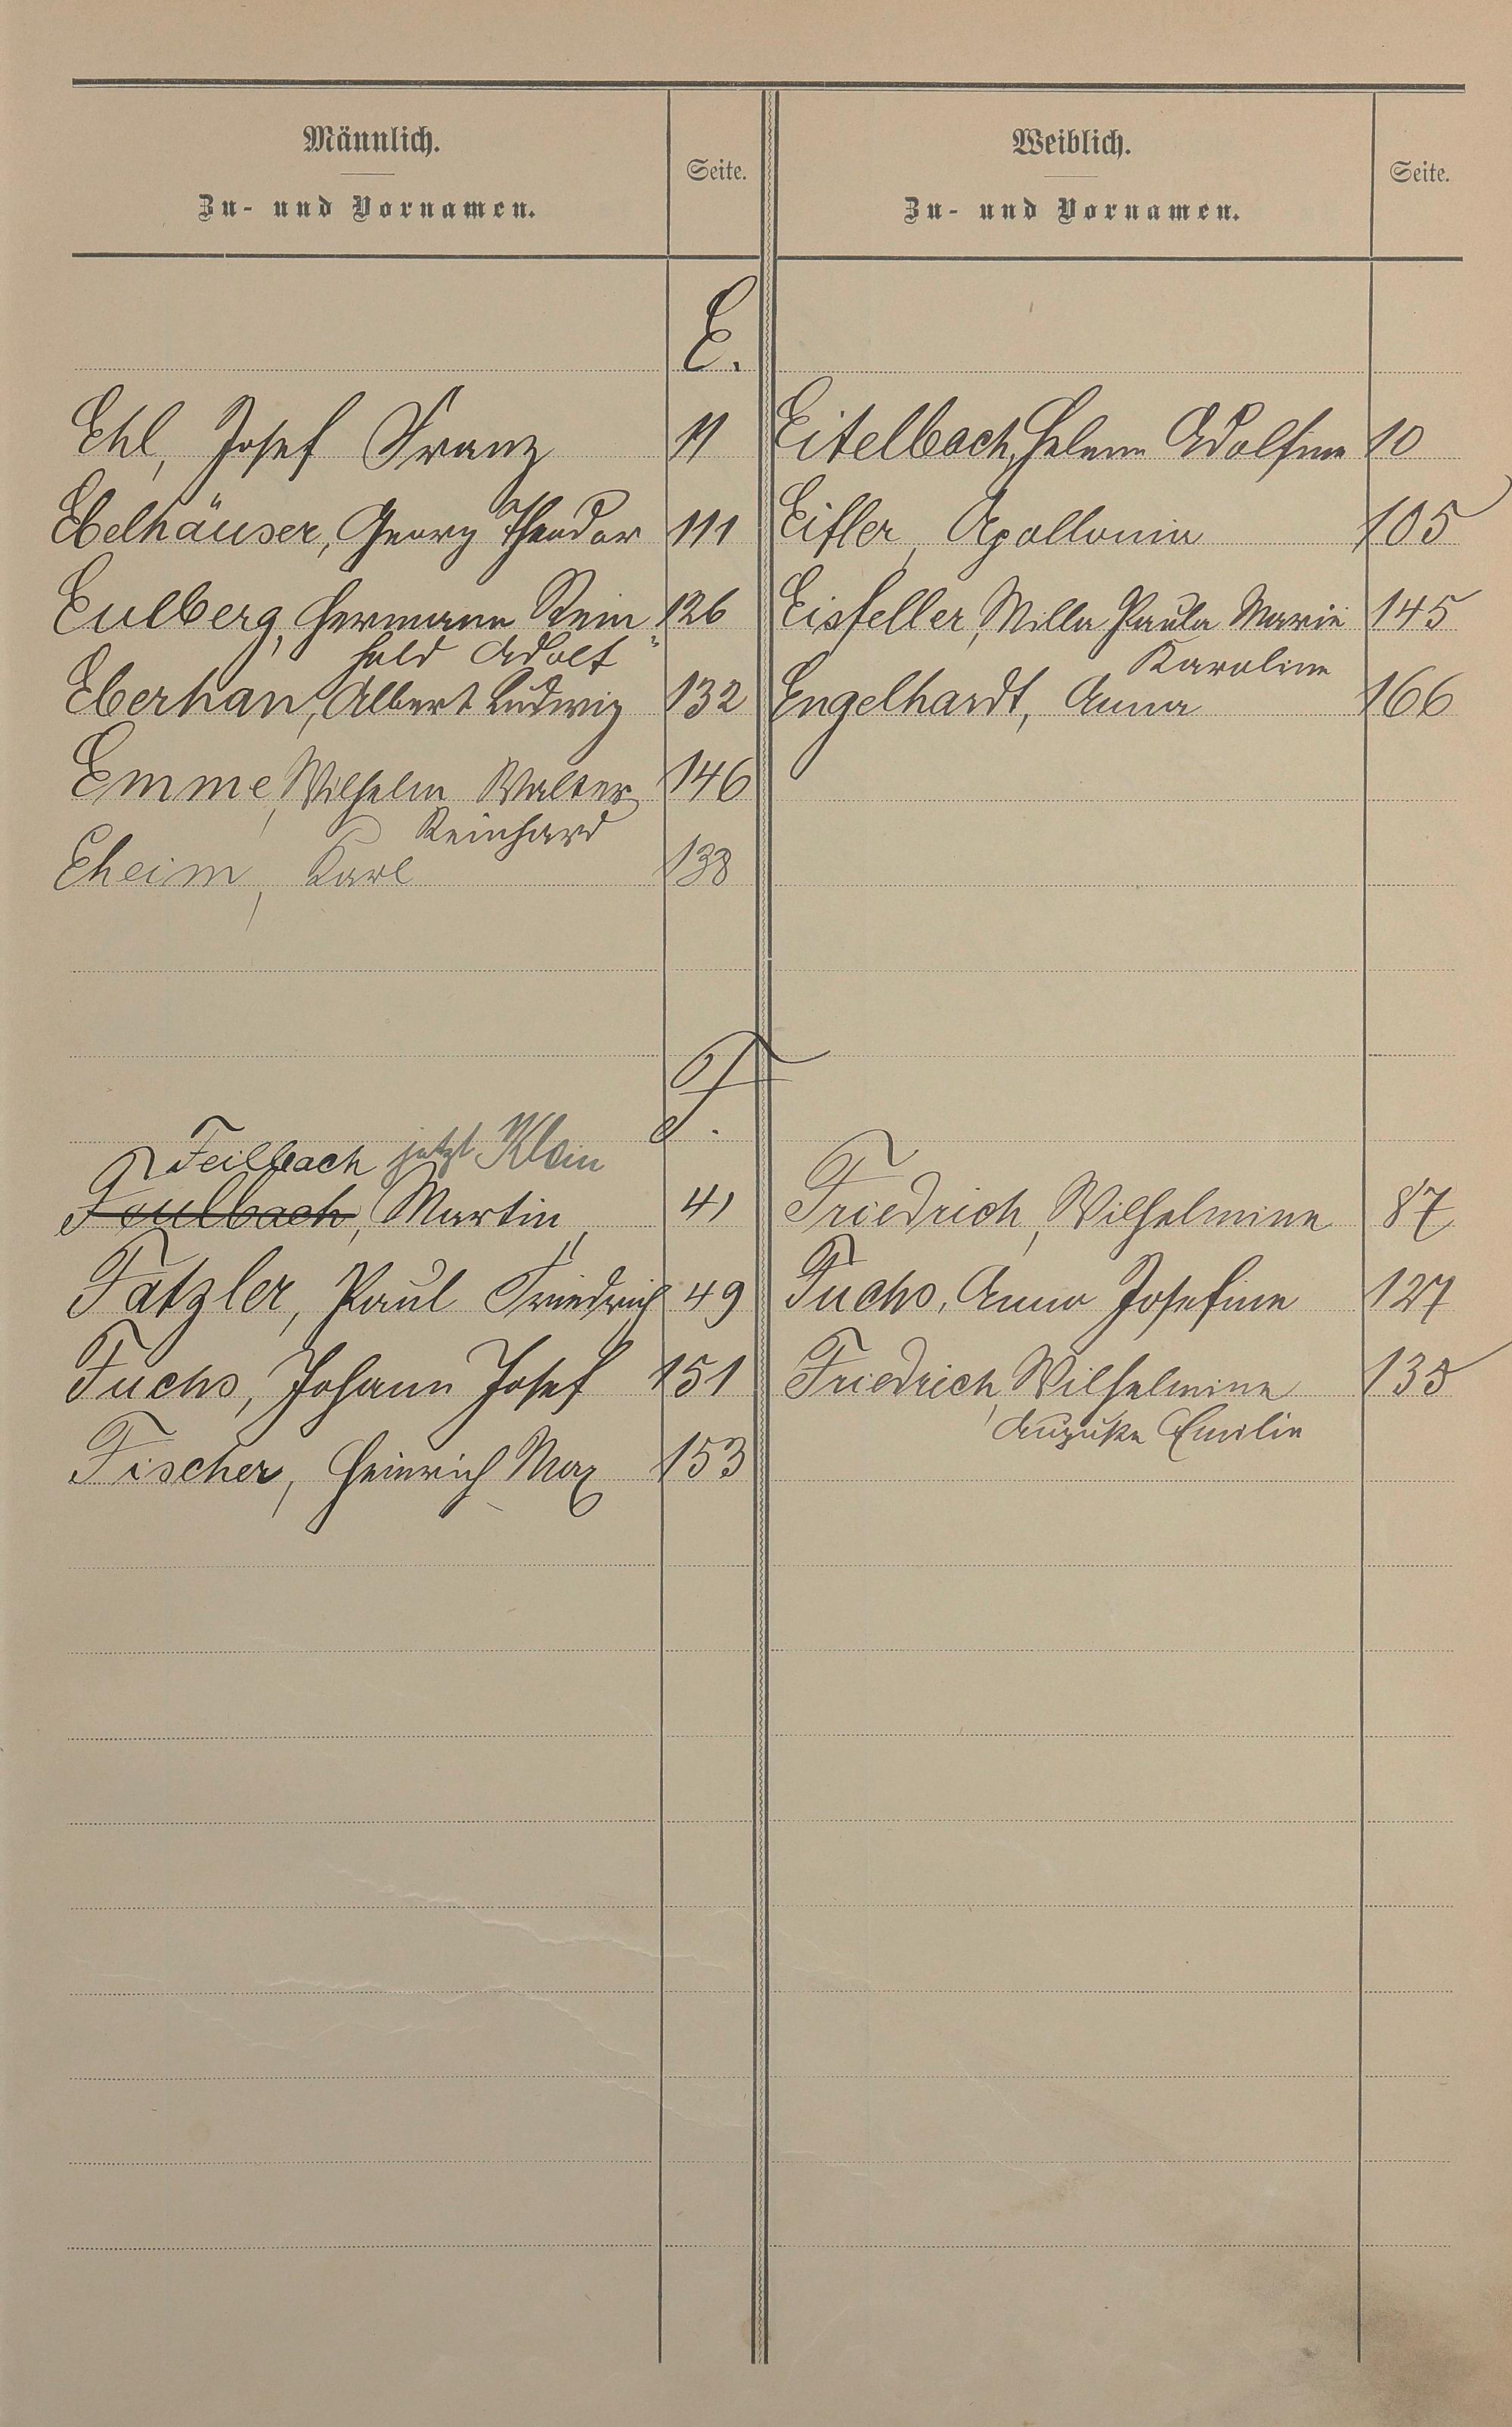 Männlich.
Zu- und Vornamen.
Seite.
Weiblich.
Zu- und Vornamen.
Seite.
E.
Ehl, Josef Franz 11 Eitelbach, Helene Adolfine 10
Ebelhäuser, Georg Theodor 111 Eifler, Apollonia 105
Eulberg, Hermann Rein 126 Eisfeller, Milla Paula Marie 145
hold Adolf Karoline
Eberhan, Albert Ludwig 132 Engelhardt, Anna 166
Emme, Wilhelm Walter 146
Reinhard
Eheim, Karl 138
F.
Feilbach jetzt Klein
Feulbach, Martin 41 Friedrich, Wilhelmine 87
Fatzler, Paul Friedrich 49 Fuchs, Anna Josefine 127
Fuchs, Johann Josef 151 Friedrich, Wilhelmine 135
Auguste Emilie
Fischer, Heinrich Max 153